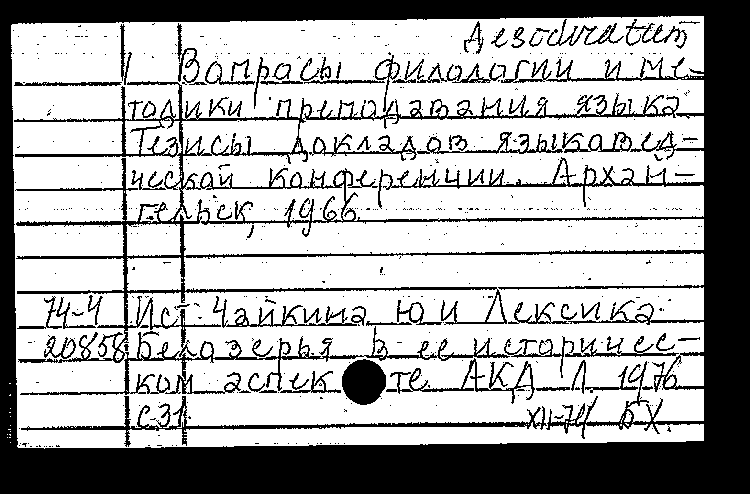 Дезidиratum
Вопросы филологии и ме-
тодики преподавания языка.
Тезисы докладов языковед-
ческой конференции. Архан-
гельск, 1966.
74-4 Ист. Чайкина Ю И Лексика
20858 Белозерья в ее историчес-
ком аспекте АКД Л. 1976
с-31 XII-74 БХ.